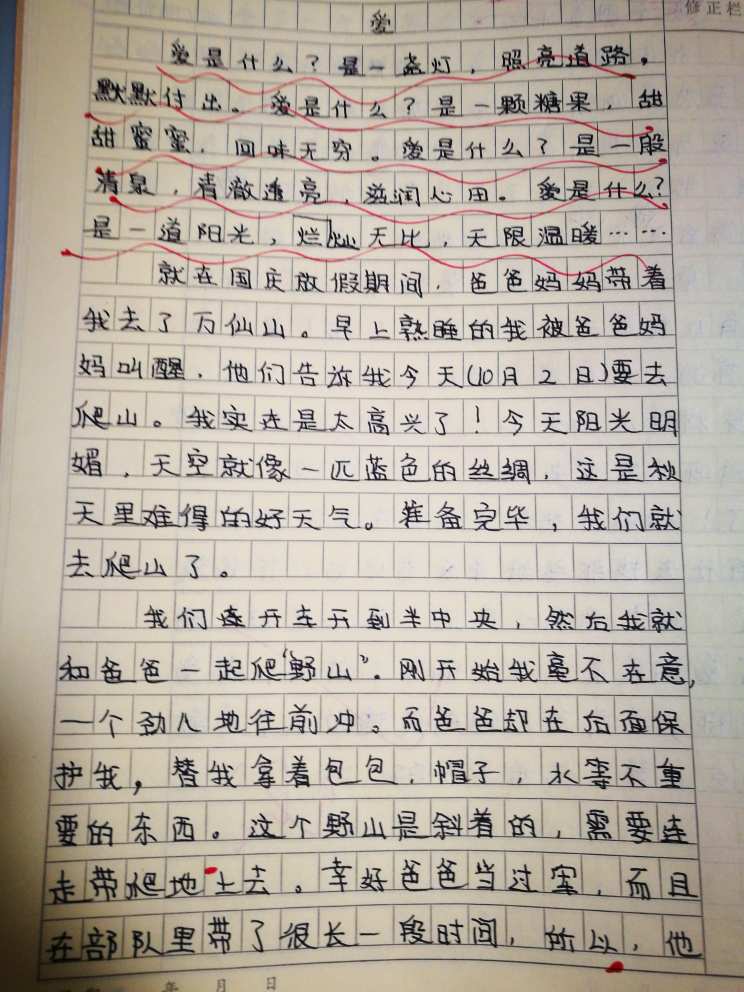 修正栏
爱
爱是什么？是一盏灯，照亮道路，
默默付出。爱是什么？是一颗糖果，甜
甜蜜蜜，回味无穷。爱是什么？是一股
清泉，清澈透亮，滋润心田。爱是什么？
是一道阳光，烂灿无比，无限温暖……
就在国庆放假期间，爸爸妈妈带着
我去了万仙山。早上熟睡的我被爸爸妈
妈叫醒，他们告诉我今天(10月2日)要去
爬山。我实在是太高兴了！今天阳光明
媚，天空就像一匹蓝色的丝绸，这是秋
天里难得的好天气。准备完毕，我们就
去爬山了。
我们连开车开到半中央，然后我就
和爸爸一起爬“野山”。刚开始我毫不在意，
一个劲儿地往前冲。而爸爸却在后面保
护我，替我拿着包包，帽子，水等不重
要的东西。这个野山是斜着的，需要连
走带爬地上去。幸好爸爸当过军，而且
在部队里带了很长一段时间，所以，他
年 月 日